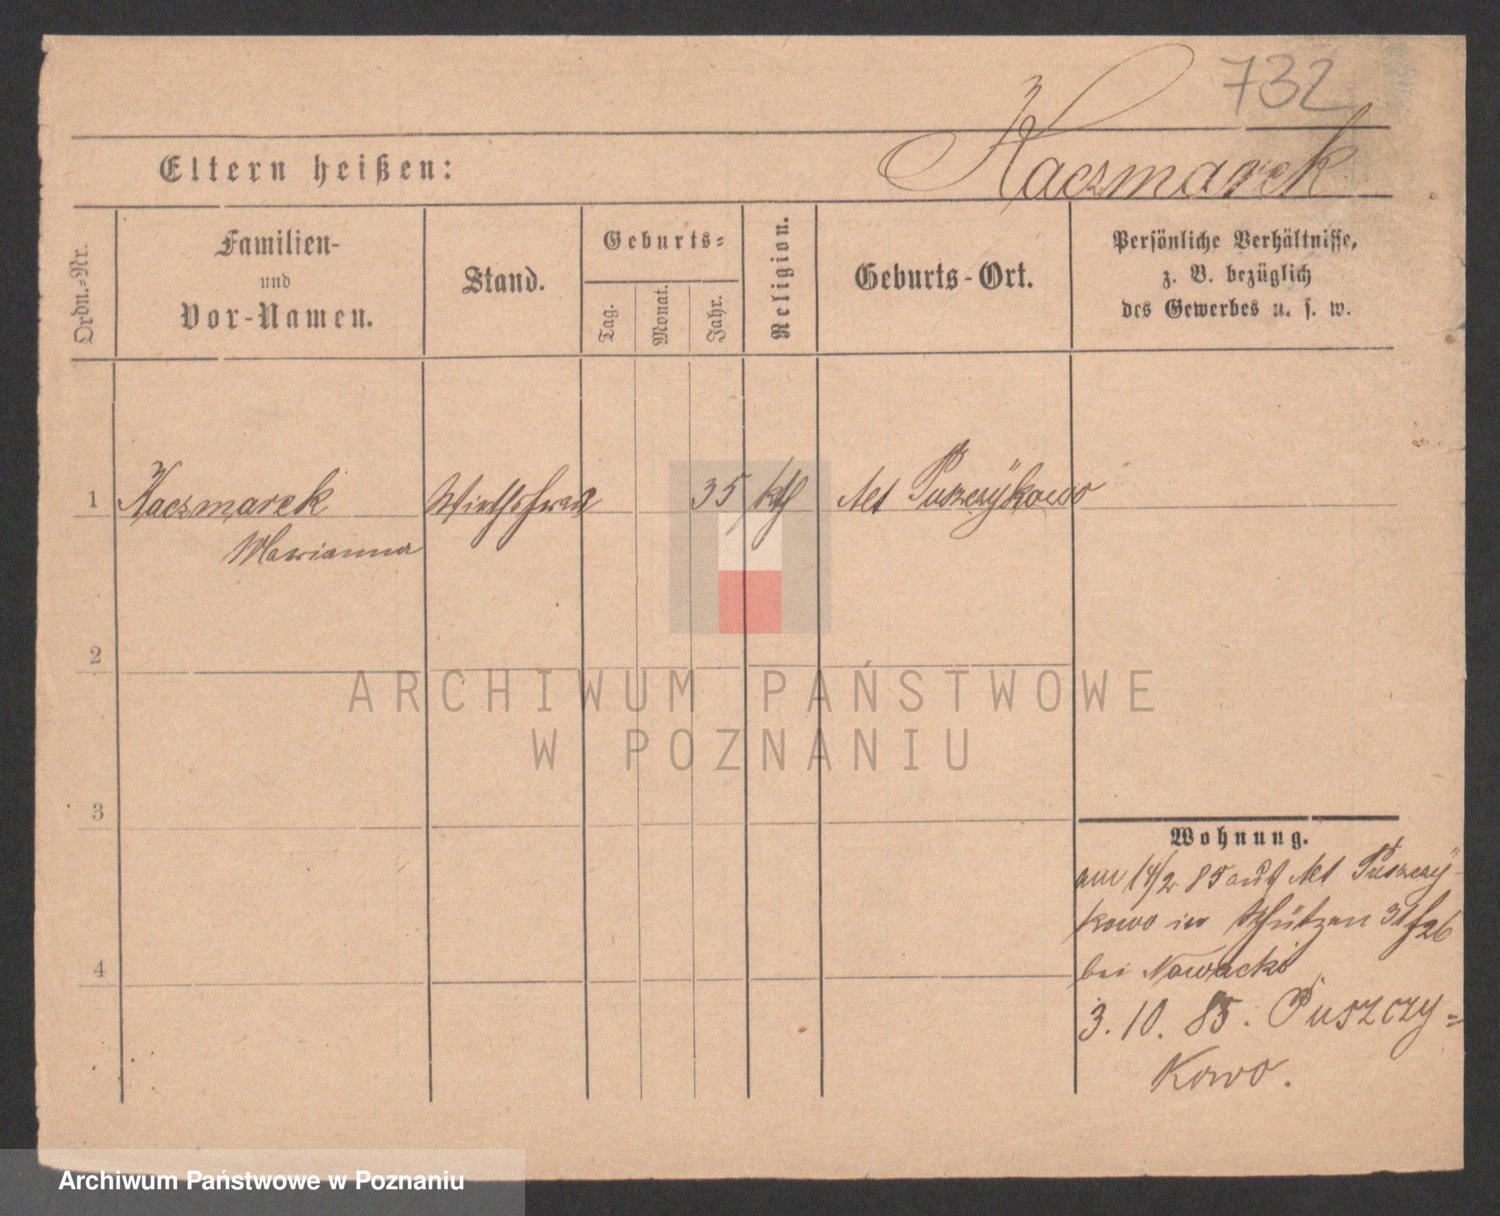 732
Kaczmarek
Eltern heißen:
Ordn.-Nr.
Familien-
und
Vor-Namen.
Stand.
Geburts-
Tag.
Monat.
Jahr.
Religion.
Geburts-Ort.
Persönliche Verhältnisse,
z. B. bezüglich
des Gewerbes u. s. w.
1 Kaczmarek Wirthsfrau 35 kth Alt Puszczÿkowo
Marianna
2
3
4
Wohnung.
am 14/2 85 aus Alt Puszczÿ-
kowo in Schützen 31
bei Nowacki
3. 10. 85. Puszczy=
kowo.
ARCHIWUM PAŃSTWOWE
W POZNANIU
Archiwum Państwowe w Poznaniu